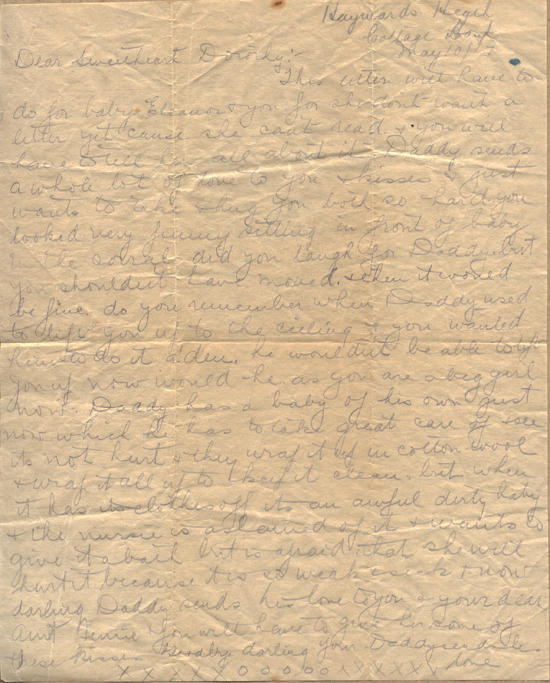 Haywards Heath
Cottage Hosp
May 10/17
Dear Sweetheart Dorothy:-
This letter will have to
do for baby Eleanor & you for she don't want a
letter yet cause she can't read & you will
have to tell her all about it. Daddy sends
a whole lot of love to you & kisses & just
wants to & hug you both so hard you
looked very funny sitting in front of baby
in the did you laugh for Daddy, but
you shouldn't have moved. & then it would
be fine. do you remember when Daddy used
to lift you up to the ceiling & you wanted
him to do it aden. he wouldn't be able to lift
you up now would he. as you are a big girl
now. Daddy has a baby of his own just
now which he has to take great care of & see
its not hurt & they wrap it up in cotton wool
& wrap it all up to keep it clean. but when
it has its clothes off its an awful dirty baby
& the nursie is ashamed of it & wants to
give it a bath but is afraid that she will
hurt it because it is so weak & sick & now
darling Daddy sends his love to you & your dear
Aunt you will have to give her some of
these kisses Goodby darling your Daddy sends his
love